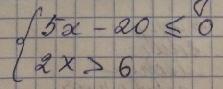 5x - 20 ≤ 0
2x > 6